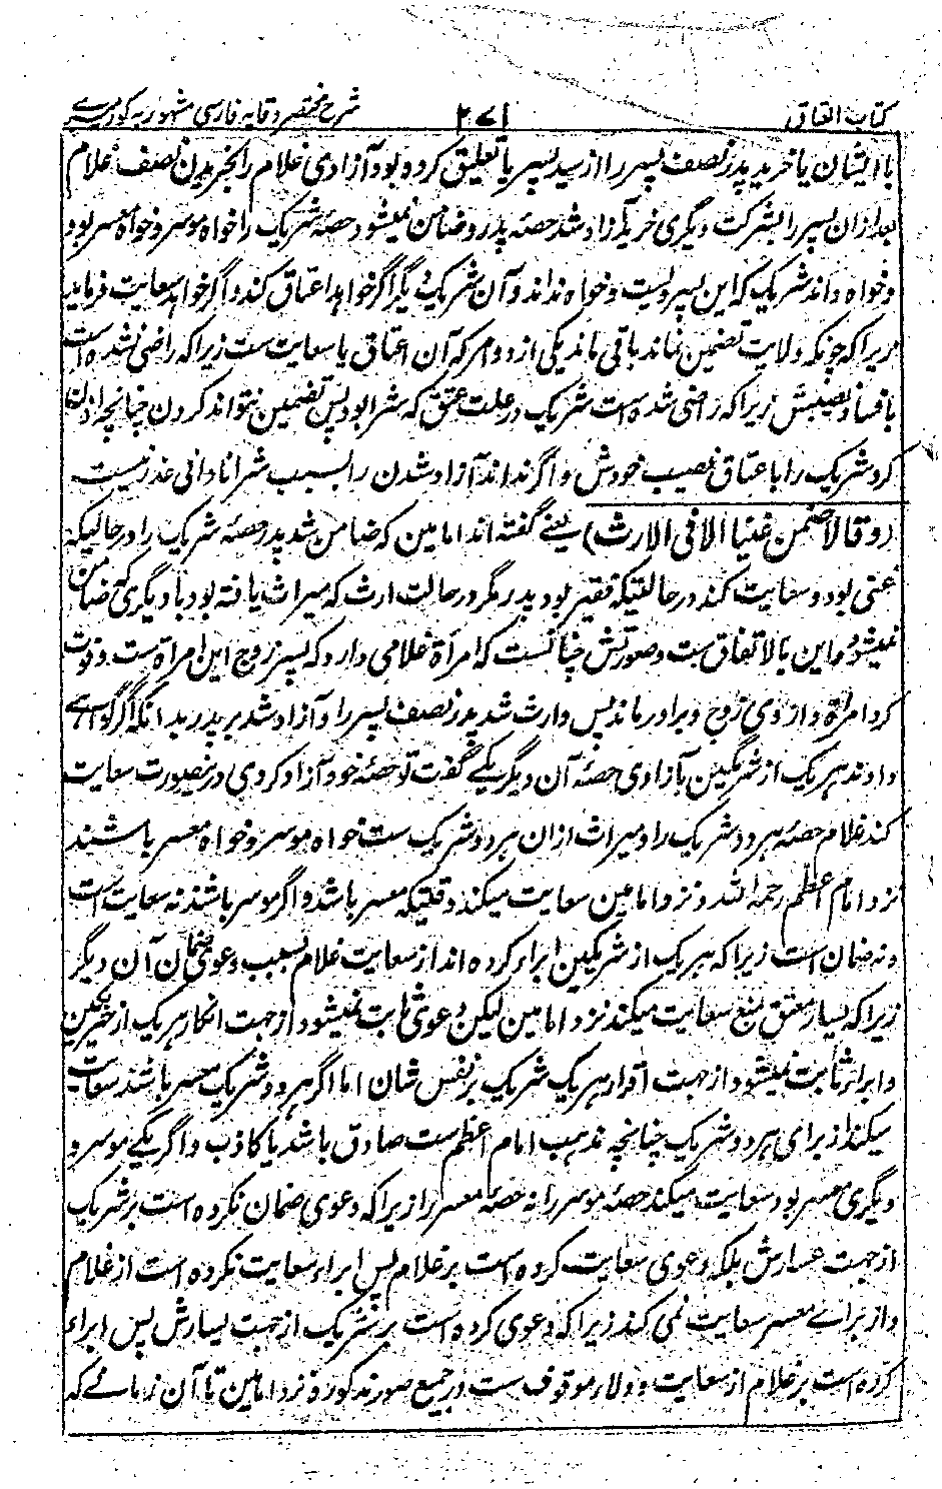 کتاب العتاق ۲۷۱ شرح مختصر وقایه فارسی مشهور به کور میری
با ایشان یا خرید پدر نصف پسر را از سید پسر یا تعلیق کرده بود آزادی غلام را بخریدن نصف غلام
بعد ازان پسر را بشرکت دیگری خرید آزاد شد حصۀ پدر و ضامن نمیشود حصۀ شریک را خواه موسر و خواه معسر بود
و خواه داند شریک که این پسر ویست و خواه نداند و آن شریک دیگر اگر خواهد اعتاق کند و اگر خواهد سعایت فرماید
زیرا که چونکه ولایت تضمین نماند باقی ماند یکی از دو امر که آن اعتاق یا سعایت ست زیرا که راضی نشده است
بافساد نصیبش زیرا که راضی شده است شریک در علت عتق که شرا بود پس تضمین نتواند کردن چنانچه اذن
کرد شریک را باعتاق نصیب خودش و اگر نداند آزاد شدن را بسبب شرا نادانی عذر نیست
(وقالا ضمن غنیا الا فی الارث) یعنے گفته اند امامین که ضامن شد پدر حصۀ شریک را در حالیکه
غنی بود و سعایت کند در حالتیکه فقیر بود پدر مگر در حالت ارث که میراث یافته بود با دیگری که ضامن
نمیشود و این بالاتفاق ست و صورتش چنانست که امرأة غلامی دارد که پسر زوج این امرأة ست و فوت
کرد امرأة و از وی زوج و برادر ماند پس وارث شد پدر نصف پسر را و آزاد شد بر پدر بدانکه اگر گواهے
دادند هر یک از شریکین بآزادی حصۀ آن دیگر یکے گفت تو حصۀ خود آزاد کردی درینصورت سعایت
کند غلام حصۀ هر دو شریک را و میراث ازان هر دو شریک ست خواه موسر و خواه معسر باشند
نزد امام اعظم رحمه الله و نزد امامین سعایت میکند وقتیکه معسر باشد و اگر موسر باشند نه سعایت است
و نه ضمان است زیرا که هر یک از شریکین ابراء کرده اند از سعایت غلام بسبب دعوی ضمان آن دیگر
زیرا که یسار معتق منع سعایت میکند نزد امامین لیکن دعوی ثابت نمیشود از جهت انکار هر یک از شریکین
و ابراء ثابت نمیشود از جهت اقرار هر یک شریک بر نفس شان اما اگر هر دو شریک معسر باشند سعایت
میکند از برای هر دو شریک چنانچه مذهب امام اعظم ست صادق باشد یا کاذب و اگر یکے موسر و
دیگری معسر بود سعایت میکند حصۀ موسر را نه حصۀ معسر را زیرا که دعوی ضمان نکرده است بر شریک
از جهت عسارش بلکه دعوی سعایت کرده است بر غلام پس ابراء سعایت نکرده است از غلام
و از برائے معسر سعایت نمی کند زیرا که دعوی کرده است بر شریک از جهت یسارش پس ابراء
کرده است بر غلام از سعایت و ولاء موقوف ست در جمیع صور مذکوره نزد امامین تا آن زمانے که